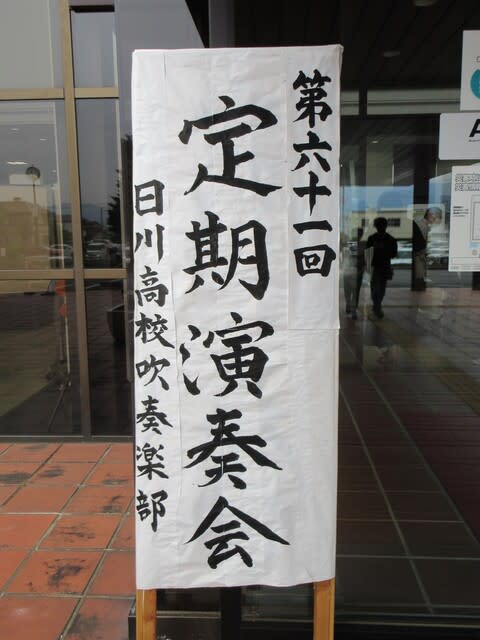 第六十一回
定期演奏会
日川高校吹奏楽部